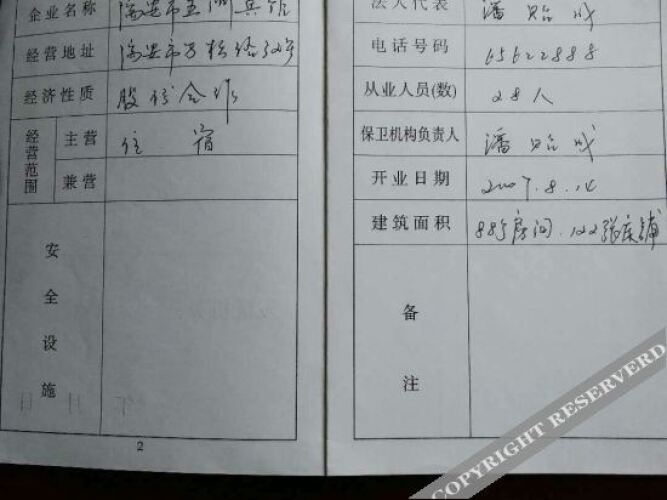 企业名称 瑞安市 宾馆
经营地址 瑞安市
经济性质 股份合作
经营范围
主营 住宿
兼营
安全设施
2
法人代表 潘贻成
电话号码 65622888
从业人员(数) 28人
保卫机构负责人 潘贻成
开业日期 2007.8.14
建筑面积 88间房间.122张床铺
备注
COPYRIGHT RESERVERD